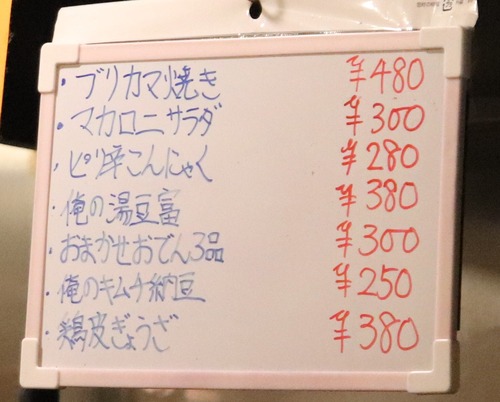 ・ブリカマ焼き ¥480
・マカロニサラダ ¥300
・ピリ辛こんにゃく ¥280
・俺の湯豆富 ¥380
・おまかせおでん3品 ¥300
・俺のキムチ納豆 ¥250
・鶏皮ぎょうざ ¥380